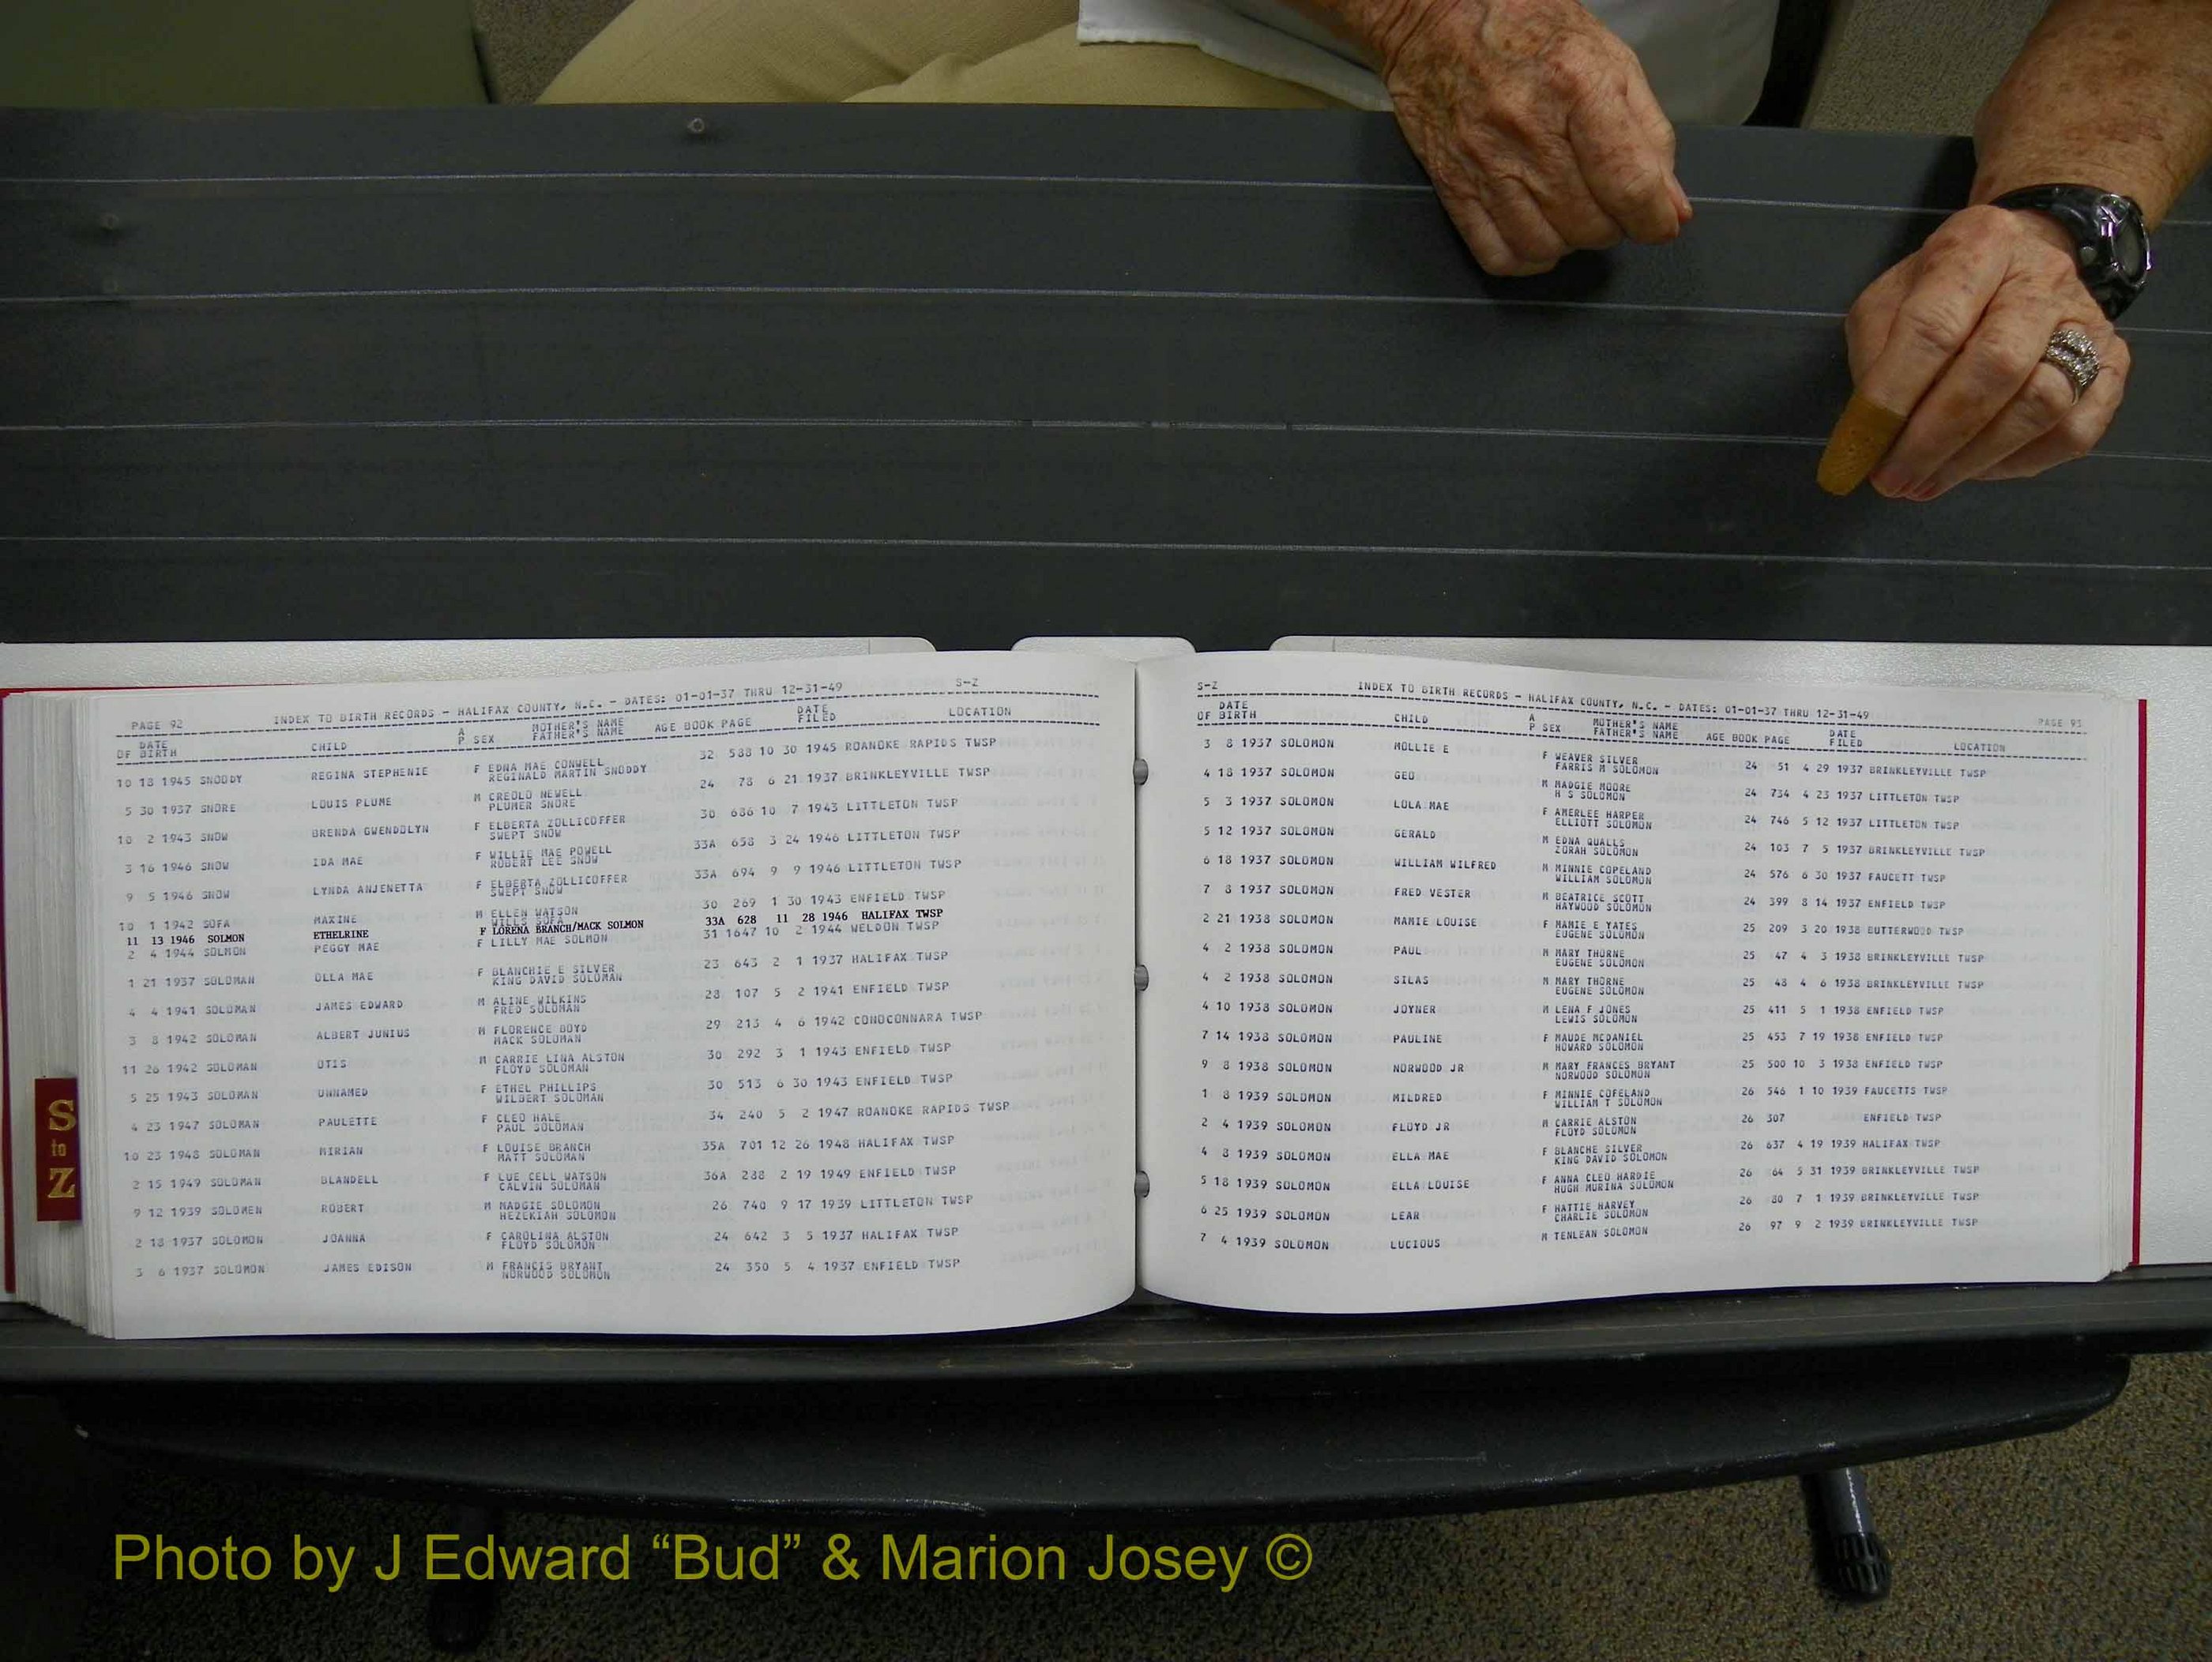 PAGE 92 INDEX TO BIRTH RECORDS - HALIFAX COUNTY, N.C. - DATES: 01-01-37 THRU 12-31-49 S-Z
DATE OF BIRTH CHILD AP SEX MOTHER'S NAME FATHER'S NAME AGE BOOK PAGE DATE FILED LOCATION
10 18 1945 SNODDY REGINA STEPHENIE F EDNA MAE CONWELL 32 588 10 30 1945 ROANOKE RAPIDS TWSP
REGINALD MARTIN SNODDY
5 30 1937 SNORE LOUIS PLUME M CREOLO NEWELL 24 78 6 21 1937 BRINKLEYVILLE TWSP
PLUMER SNORE
10 2 1943 SNOW BRENDA GWENDOLYN F ELBERTA ZOLLICOFFER 30 686 10 7 1943 LITTLETON TWSP
SWEPT SNOW
3 16 1946 SNOW IDA MAE F WILLIE MAE POWELL 33A 658 3 24 1946 LITTLETON TWSP
ROBERT LEE SNOW
9 5 1946 SNOW LYNDA ANJENETTA F ELBERTA ZOLLICOFFER 33A 694 9 9 1946 LITTLETON TWSP
SWEPT SNOW
10 1 1942 SOFA MAXINE M ELLEN WATSON 30 269 1 30 1943 ENFIELD TWSP
WILLS SOFA
11 13 1946 SOLMON ETHELRINE F LORENA BRANCH/MACK SOLMON 33A 628 11 28 1946 HALIFAX TWSP
2 4 1944 SOLMON PEGGY MAE F LILLY MAE SOLMON 31 1647 10 2 1944 WELDON TWSP
1 21 1937 SOLOMAN OLLA MAE F BLANCHIE E SILVER 23 643 2 1 1937 HALIFAX TWSP
KING DAVID SOLOMAN
4 4 1941 SOLOMAN JAMES EDWARD M ALINE WILKINS 28 107 5 2 1941 ENFIELD TWSP
FRED SOLOMAN
3 8 1942 SOLOMAN ALBERT JUNIUS M FLORENCE BOYD 29 213 4 6 1942 CONOCONNARA TWSP
MACK SOLOMAN
11 26 1942 SOLOMAN OTIS M CARRIE LINA ALSTON 30 292 3 1 1943 ENFIELD TWSP
FLOYD SOLOMAN
5 25 1943 SOLOMAN UNNAMED F ETHEL PHILLIPS 30 513 6 30 1943 ENFIELD TWSP
WILBERT SOLOMAN
4 23 1947 SOLOMAN PAULETTE F CLEO HALE 34 240 5 2 1947 ROANOKE RAPIDS TWSP
PAUL SOLOMAN
10 23 1948 SOLOMAN MIRIAN F LOUISE BRANCH 35A 701 12 26 1948 HALIFAX TWSP
MATT SOLOMAN
2 15 1949 SOLOMAN BLANDELL F LUE CELL WATSON 36A 288 2 19 1949 ENFIELD TWSP
CALVIN SOLOMAN
9 12 1939 SOLOMEN ROBERT M MADGIE SOLOMON 26 740 9 17 1939 LITTLETON TWSP
HEZEKIAH SOLOMON
2 18 1937 SOLOMON JOANNA F CAROLINA ALSTON 24 642 3 5 1937 HALIFAX TWSP
FLOYD SOLOMON
3 6 1937 SOLOMON JAMES EDISON M FRANCIS BRYANT 24 350 5 4 1937 ENFIELD TWSP
NORWOOD SOLOMON
S to Z
S-Z INDEX TO BIRTH RECORDS - HALIFAX COUNTY, N.C. - DATES: 01-01-37 THRU 12-31-49 PAGE 93
DATE OF BIRTH CHILD AP SEX MOTHER'S NAME FATHER'S NAME AGE BOOK PAGE DATE FILED LOCATION
3 8 1937 SOLOMON MOLLIE E F WEAVER SILVER 24 51 4 29 1937 BRINKLEYVILLE TWSP
FARRIS M SOLOMON
4 18 1937 SOLOMON GEO M MADGIE MOORE 24 734 4 23 1937 LITTLETON TWSP
H S SOLOMON
5 3 1937 SOLOMON LOLA MAE F AMERLEE HARPER 24 746 5 12 1937 LITTLETON TWSP
ELLIOTT SOLOMON
5 12 1937 SOLOMON GERALD M EDNA QUALLS 24 103 7 5 1937 BRINKLEYVILLE TWSP
ZORAH SOLOMON
6 18 1937 SOLOMON WILLIAM WILFRED M MINNIE COPELAND 24 576 6 30 1937 FAUCETT TWSP
WILLIAM SOLOMON
7 8 1937 SOLOMON FRED VESTER M BEATRICE SCOTT 24 399 8 14 1937 ENFIELD TWSP
HAYWOOD SOLOMON
2 21 1938 SOLOMON MAMIE LOUISE F MAMIE E YATES 25 209 3 20 1938 BUTTERWOOD TWSP
EUGENE SOLOMON
4 2 1938 SOLOMON PAUL M MARY THORNE 25 47 4 3 1938 BRINKLEYVILLE TWSP
EUGENE SOLOMON
4 2 1938 SOLOMON SILAS M MARY THORNE 25 48 4 6 1938 BRINKLEYVILLE TWSP
EUGENE SOLOMON
4 10 1938 SOLOMON JOYNER M LENA F JONES 25 411 5 1 1938 ENFIELD TWSP
LEWIS SOLOMON
7 14 1938 SOLOMON PAULINE F MAUDE MCDANIEL 25 453 7 19 1938 ENFIELD TWSP
HOWARD SOLOMON
9 8 1938 SOLOMON NORWOOD JR M MARY FRANCES BRYANT 25 500 10 3 1938 ENFIELD TWSP
NORWOOD SOLOMON
1 8 1939 SOLOMON MILDRED F MINNIE COPELAND 26 546 1 10 1939 FAUCETTS TWSP
WILLIAM T SOLOMON
2 4 1939 SOLOMON FLOYD JR M CARRIE ALSTON 26 307 ENFIELD TWSP
FLOYD SOLOMON
4 8 1939 SOLOMON ELLA MAE F BLANCHE SILVER 26 637 4 19 1939 HALIFAX TWSP
KING DAVID SOLOMON
5 18 1939 SOLOMON ELLA LOUISE F ANNA CLEO HARDIE 26 64 5 31 1939 BRINKLEYVILLE TWSP
HUGH MURINA SOLOMON
6 25 1939 SOLOMON LEAR F HATTIE HARVEY 26 80 7 1 1939 BRINKLEYVILLE TWSP
CHARLIE SOLOMON
7 4 1939 SOLOMON LUCIOUS M TENLEAN SOLOMON 26 97 9 2 1939 BRINKLEYVILLE TWSP
Photo by J Edward “Bud” & Marion Josey ©